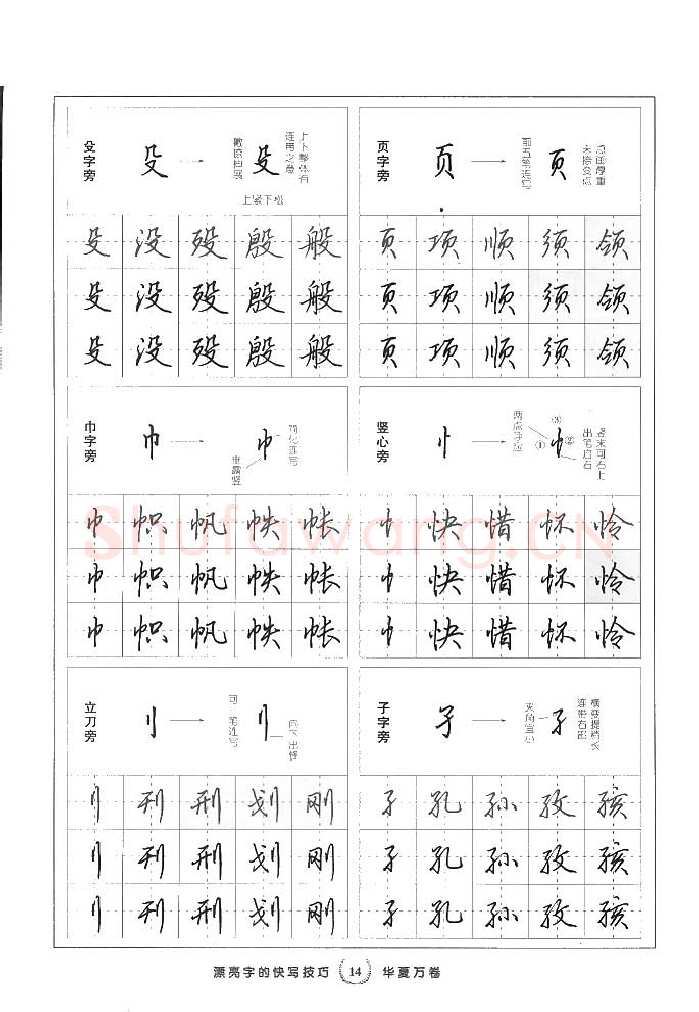 殳字旁
殳
殳
撇原档展
上下整体有
连带之意
上紧下松
页字旁
页
页
末捺变点
殳 没 殁 殷 般
殳 没 殁 殷 般
殳 没 殁 殷 般
页 项 顺 须 领
页 项 顺 须 领
页 项 顺 须 领
巾字旁
巾
巾
垂露竖
简化连写
竖心旁
忄
忄
两点呼应
①
②
③
竖末可右上
出笔启右
巾 帜 帆 帙 帐
巾 帜 帆 帙 帐
巾 帜 帆 帙 帐
忄 快 惜 怀 怜
忄 快 惜 怀 怜
忄 快 惜 怀 怜
Shufawang.CN
立刀旁
刂
刂
向下出锋
子字旁
子
子
夹角宜小
横变提稍长
连带右部
刂 刊 刑 划 刚
刂 刊 刑 划 刚
刂 刊 刑 划 刚
子 孔 孙 孜 孩
子 孔 孙 孜 孩
子 孔 孙 孜 孩
漂亮字的快写技巧 14 华夏万卷